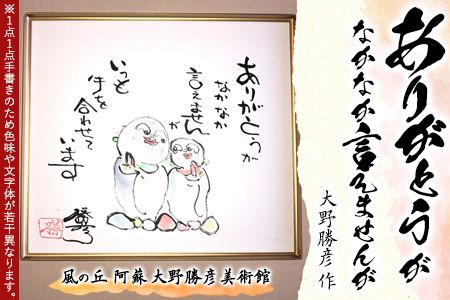 ありがとうが
なかなか言えませんが
大野勝彦 作
ありがとうが
なかなか
言えませんが
いつも
手を合わせて
います
風の丘 阿蘇 大野勝彦美術館
※1点1点手書きのため色味や文字体が若干異なります。